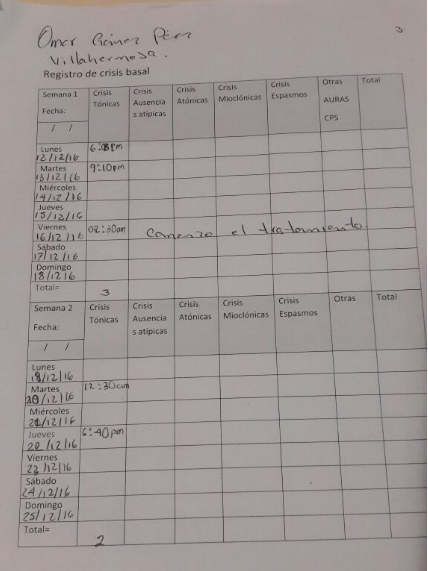 3
Omar Pérez
Villahermosa.
Registro de crisis basal
Semana 1 Fecha: / / Crisis Tónicas Crisis Ausencias atípicas Crisis Atónicas Crisis Mioclónicas Crisis Espasmos Otras AURAS CPS Total
Lunes 12/12/16 6:08pm
Martes 13/12/16 9:10pm
Miércoles 14/12/16
Jueves 15/12/16
Viernes 16/12/16 02:30am Comenzo el tratamiento
Sábado 17/12/16
Domingo 18/12/16
Total= 3
Semana 2 Fecha: / / Crisis Tónicas Crisis Ausencias atípicas Crisis Atónicas Crisis Mioclónicas Crisis Espasmos Otras Total
Lunes 19/12/16
Martes 20/12/16 12:30am
Miércoles 21/12/16
Jueves 22/12/16 6:40pm
Viernes 23/12/16
Sábado 24/12/16
Domingo 25/12/16
Total= 2